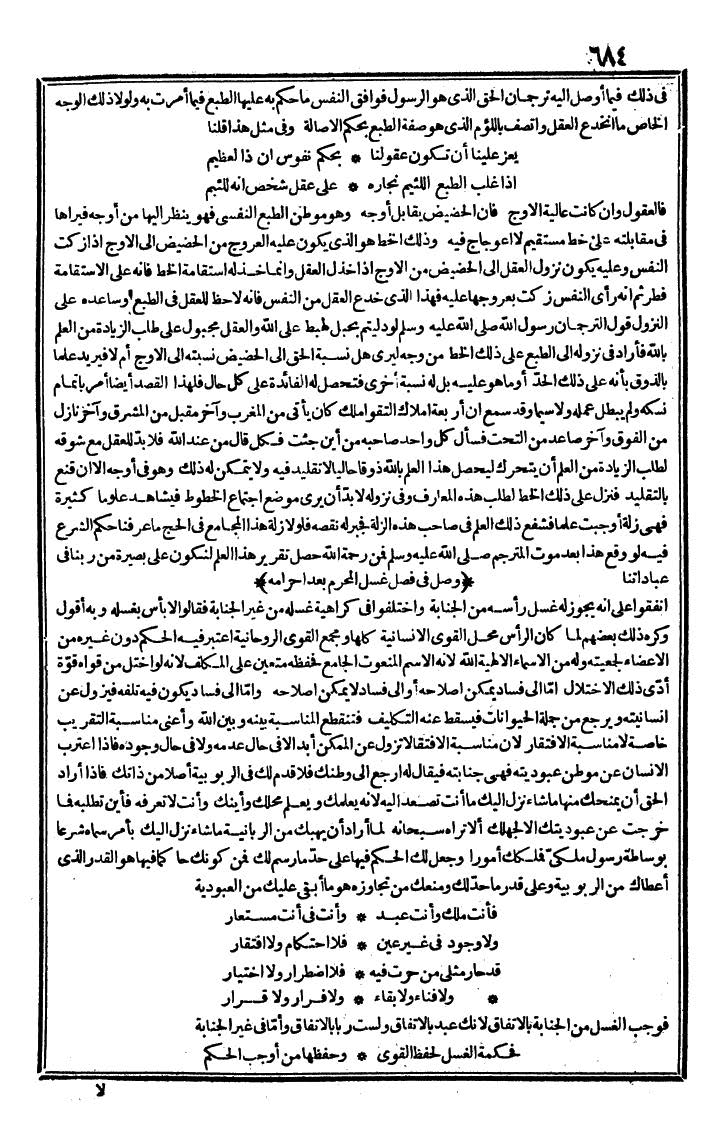 ٦٨٤
فى ذلك فيما أوصل اليه ترجمان الحق الذى هو الرسول فوافق النفس ما حكم به عليها الطبع فيما أمرت به ولولا ذلك الوجه
الخاص ما انخدع العقل واتصف باللؤم الذى هو صفة الطبع بحكم الاصالة وفى مثل هذا قلنا
يعز علينا أن تكون عقولنا * بحكم نفوس ان ذا لعظيم
اذا غلب الطبع اللئيم نجاره * على عقل شخص انه للئيم
فالعقول وان كانت عالية الاوج فان الحضيض يقابل أوجه وهو موطن الطبع النفسى فهو ينظر اليها من أوجه فيراها
فى مقابلته على خط مستقيم لا اعوجاج فيه وذلك الخط هو الذى يكون عليه العروج من الحضيض الى الاوج اذا زكت
النفس وعليه يكون نزول العقل الى الحضيض من الاوج اذا خذل العقل وانما خذله استقامة الخط فانه على الاستقامة
فطر ثم انه رأى النفس زكت بعروجها عليه فهذا الذى خدع العقل من النفس فانه لا حظ للعقل فى الطبع وساعده على
النزول قول الترجمان رسول الله صلى الله عليه وسلم لو دليتم بحبل لهبط على الله والعقل مجبول على طلب الزيادة من العلم
بالله فأراد فى نزوله الى الطبع على ذلك الخط من وجه ليرى هل نسبة الحق الى الحضيض نسبته الى الاوج أم لا فيريد علما
بالذوق بأنه على ذلك الحدّ أو ما هو عليه بل له نسبة أخرى فتحصل له الفائدة على كل حال فلهذا القصد أيضا أمر باتمام
نسكه ولم يبطل عمله ولا سيما وقد سمع ان أربعة املاك التقوا ملك كان يأتى من المغرب وآخر مقبل من المشرق وآخر نازل
من الفوق وآخر صاعد من التحت فسأل كل واحد صاحبه من أين جئت فكل قال من عند الله فلا بدّ للعقل مع شوقه
لطلب الزيادة من العلم أن يتحرك ليحصل هذا العلم بالله ذوقا حاليا لا تقليد فيه ولا يتمكن له ذلك وهو فى أوجه الا ان قنع
بالتقليد فنزل على ذلك الخط لطلب هذه المعارف وفى نزوله لا بدّ أن يرى موضع اجتماع الخطوط فيشاهد علوما كثيرة
فهى زلة أوجبت علما فشفع ذلك العلم فى صاحب هذه الزلة فجبر له نقصه فلولا زلة هذا المجامع فى الحج ما عرفنا حكم الشرع
فيه لو وقع هذا بعد موت المترجم صلى الله عليه وسلم فمن رحمة الله حصل تقرير هذا العلم لنكون على بصيرة من ربنا فى
عباداتنا ﴿وصل فى فصل غسل المحرم بعد احرامه﴾
اتفقوا على انه يجوز له غسل رأسه من الجنابة واختلفوا فى كراهية غسله من غير الجنابة فقالوا لا بأس بغسله وبه أقول
وكره ذلك بعضهم لما كان الرأس محل القوى الانسانية كلها ومجمع القوى الروحانية اعتبر فيه الحكم دون غيره من
الاعضاء لجمعيته وله من الاسماء الالهية الله لانه الاسم المنعوت الجامع فحفظه متعين على المكلف لانه لو اختل من قواه قوّة
أدّى ذلك الاختلال امّا الى فساد يمكن اصلاحه أو الى فساد لا يمكن اصلاحه وامّا الى فساد يكون فيه تلفه فيزول عن
انسانيته ويرجع من جملة الحيوانات فيسقط عنه التكليف فتنقطع المناسبة بينه وبين الله وأعنى مناسبة التقريب
خاصة لا مناسبة الافتقار لان مناسبة الافتقار لا تزول عن الممكن أبدا لا فى حال عدمه ولا فى حال وجوده فاذا اغترب
الانسان عن موطن عبوديته فهى جنابته فيقال له ارجع الى وطنك فلا قدم لك فى الربوبية أصلا من ذاتك فاذا أراد
الحق أن يمنحك منها ما شاء نزل اليك ما أنت تصعد اليه لانه يعلمك ويعلم محلك وأينك وأنت لا تعرفه فأين تطلبه فما
خرجت عن عبوديتك الا لجهلك ألا تراه سبحانه لما أراد أن يهبك من الربانية ما شاء نزل اليك بأمر سماه شرعا
بوساطة رسول ملكىّ فملكك أمورا وجعل لك الحكم فيها على حدّ ما رسم لك فمن كونك حاكما فيها هو القدر الذى
أعطاك من الربوبية وعلى قدر ما حدّ لك ومنعك من تجاوزه هو ما أبقى عليك من العبودية
فأنت ملك وأنت عبد * وأنت فى أنت مستعار
ولا وجود فى غير عين * فلا احتكام ولا افتقار
قد حار مثلى من حرت فيه * فلا اضطرار ولا اختيار
ولا فناء ولا بقاء * ولا فرار ولا قرار *
فوجب الغسل من الجنابة بالاتفاق لانك عبد بالاتفاق ولست ربا بالاتفاق وأمّا فى غير الجنابة
فحكمة الغسل لحفظ القوى * وحفظها من أوجب الحكم
لا